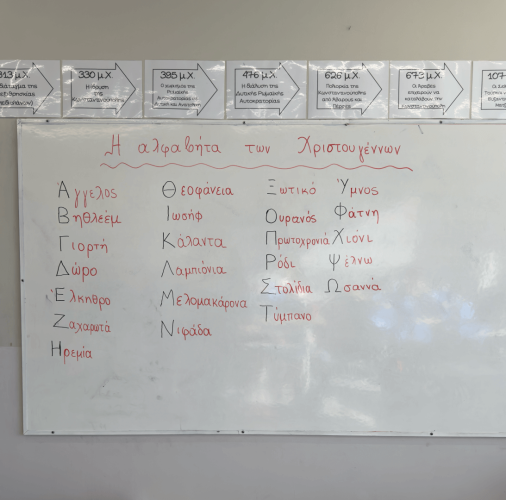 313 μ.Χ.
330 μ.Χ.
Η ίδρυση
της
Κωνσταντινούπολης
395 μ.Χ.
476 μ.Χ.
Η διάλυση της
Δυτικής Ρωμαϊκής
Αυτοκρατορίας
626 μ.Χ.
Πολιορκία της
Κωνσταντινούπολης
από Αβάρους και
Πέρσες
673 μ.Χ.
Οι Άραβες
την Κωνσταντινούπολη
107
Η αλφαβήτα των Χριστουγέννων
Άγγελος
Βηθλεέμ
Γιορτή
Δώρο
Έλκηθρο
Ζαχαρωτά
Ηρεμία
Θεοφάνεια
Ιωσήφ
Κάλαντα
Λαμπιόνια
Μελομακάρονα
Νιφάδα
Ξωτικό
Ουρανός
Πρωτοχρονιά
Ρόδι
Στολίδια
Τύμπανο
Ύμνος
Φάτνη
Χιόνι
Ψέλνω
Ωσαννά